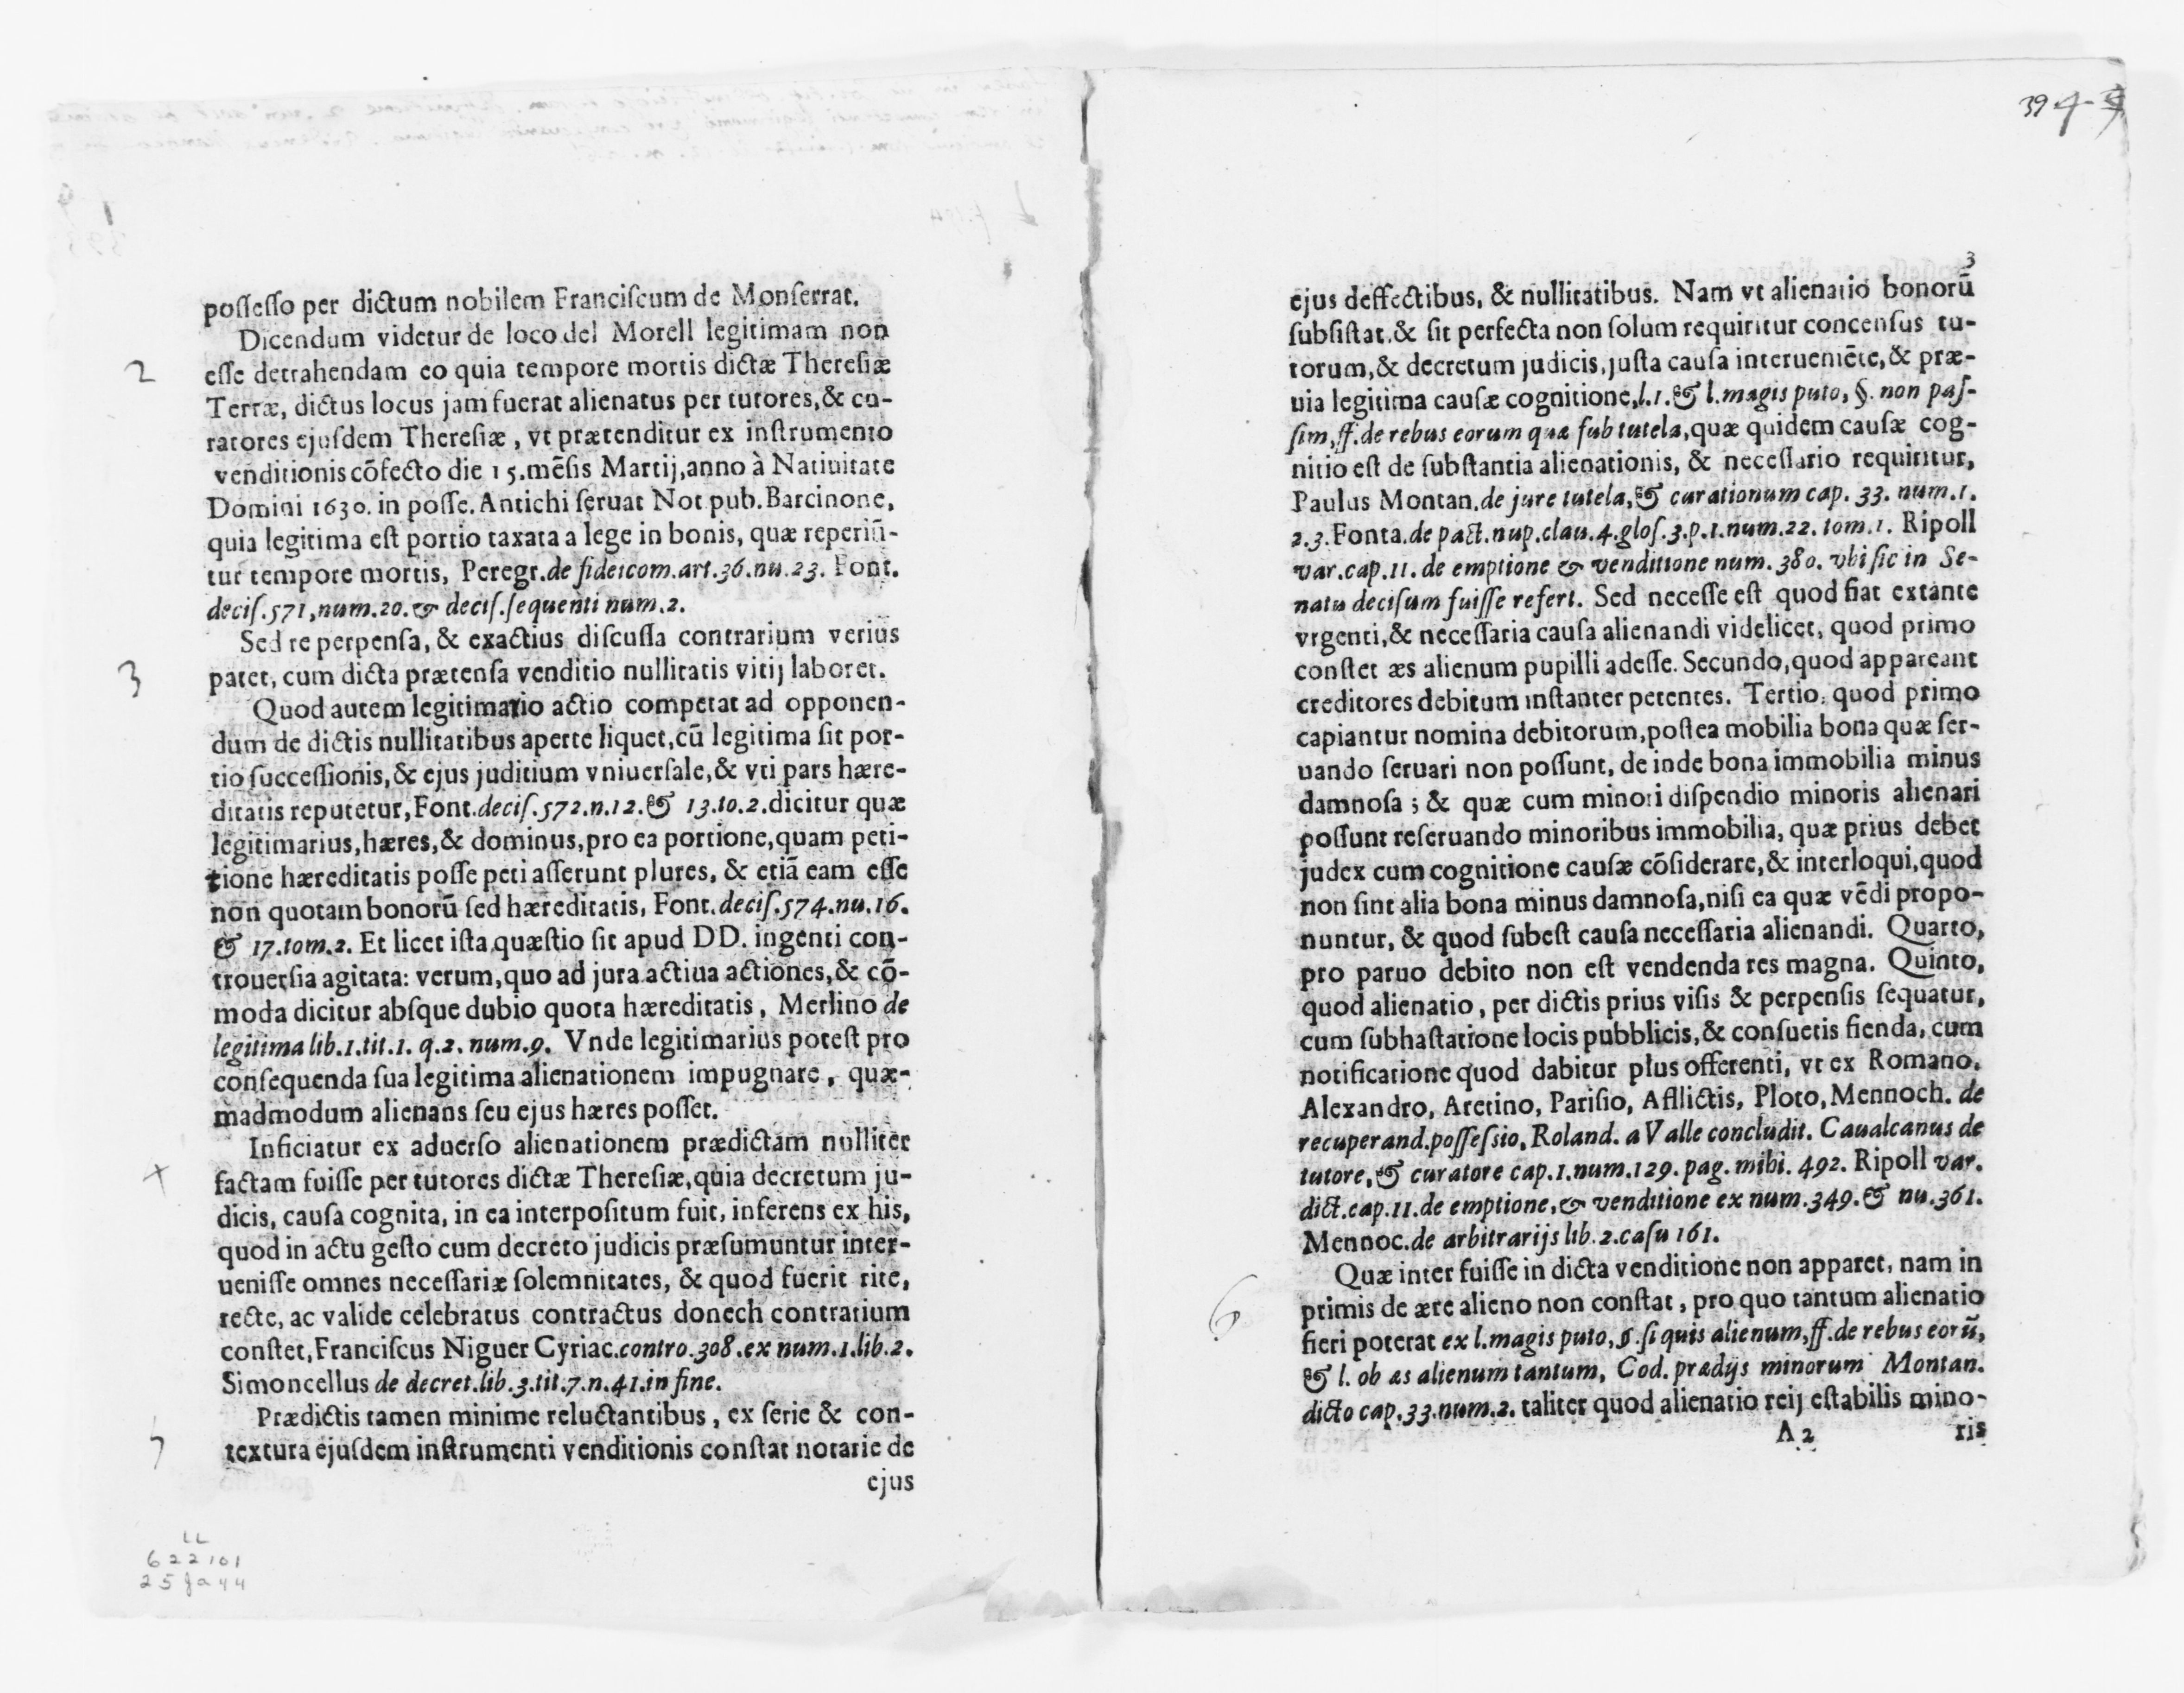 possesso per dictum nobilem Franciscum de Monserrat.
Dicendum videtur de loco del Morell legitimam non
2
esse detrahendam eo quia tempore mortis dictæ Theresiæ
Terræ, dictus locus jam fuerat alienatus per tutores,& cu-
ratores ejusdem Theresiæ, vt prætenditur ex instrumento
venditionis cõfecto die 15.mẽsis Martij,anno à Natiuitate
Domini 1630. in posse. Antichi seruat Not.pub.Barcinone,
quia legitima est portio taxata a lege in bonis, quæ reperiũ-
tur tempore mortis, Peregr.de fideicom.art.36.nu.23. Font.
decis.571,num.20.& decis.sequenti num.2.
Sed re perpensa, & exactius discussa contrarium verius
3
patet, cum dicta prætensa venditio nullitatis vitij laboret.
Quod autem legitimario actio competat ad opponen-
dum de dictis nullitatibus aperte liquet,cũ legitima sit por-
tio successionis,& ejus juditium vniuersale,& vti pars hære-
ditatis reputetur,Font.decis.572.n.12.& 13.to.2.dicitur quæ
legitimarius,hæres,& dominus,pro ea portione,quam peti-
tione hæreditatis posse peti asserunt plures, & etiã eam esse
non quotam bonorũ sed hæreditatis, Font.decis.574.nu.16.
& 17.tom.2. Et licet ista quæstio sit apud DD. ingenti con-
trouersia agitata: verum,quo ad jura actiua actiones,& cõ-
moda dicitur absque dubio quota hæreditatis, Merlino de
legitima lib.1.tit.1. q.2. num.9. Vnde legitimarius potest pro
consequenda sua legitima alienationem impugnare, quæ-
madmodum alienans seu ejus hæres posset.
Inficiatur ex aduerso alienationem prædictam nulliter
factam fuisse per tutores dictæ Theresiæ,quia decretum ju-
dicis, causa cognita, in ea interpositum fuit, inferens ex his,
quod in actu gesto cum decreto judicis præsumuntur inter-
uenisse omnes necessariæ solemnitates, & quod fuerit rite,
recte, ac valide celebratus contractus donech contrarium
constet,Franciscus Niguer Cyriac.contro.308.ex num.1.lib.2.
Simoncellus de decret.lib.3.tit.7.n.41.in fine.
Prædictis tamen minime reluctantibus, ex serie & con-
textura ejusdem instrumenti venditionis constat notarie de
ejus
LL
622101
25 Ja 44
39 4-
3
ejus deffectibus, & nullitatibus. Nam vt alienatio bonorũ
subsistat.& sit perfecta non solum requiritur concensus tu-
torum,& decretum judicis,justa causa interueniẽte,& præ-
uia legitima causæ cognitione,l.1.& l.magis puto, §. non pas-
sim,ff.de rebus eorum quæ sub tutela,quæ quidem causæ cog-
nitio est de substantia alienationis, & necessario requiritur,
Paulus Montan.de jure tutela,& curationum cap. 33. num.1.
2.3.Fonta.de pact.nup.clau.4.glos.3.p.1.num.22. tom.1. Ripoll
var.cap.11. de emptione & venditione num.380. vbi sic in Se-
natu decisum fuisse refert. Sed necesse est quod fiat extante
vrgenti,& necessaria causa alienandi videlicet, quod primo
constet æs alienum pupilli adesse. Secundo,quod appareant
creditores debitum instanter petentes. Tertio, quod primo
capiantur nomina debitorum,postea mobilia bona quæ ser-
uando seruari non possunt, de inde bona immobilia minus
damnosa ; & quæ cum minori dispendio minoris alienari
possunt reseruando minoribus immobilia, quæ prius debet
judex cum cognitione causæ cõsiderare,& interloqui,quod
non sint alia bona minus damnosa,nisi ea quæ vẽdi propo-
nuntur, & quod subest causa necessaria alienandi. Quarto,
pro paruo debito non est vendenda res magna. Quinto,
quod alienatio, per dictis prius visis & perpensis sequatur,
cum subhastatione locis pubblicis,& consuetis fienda, cum
notificatione quod dabitur plus offerenti, vt ex Romano,
Alexandro, Aretino, Parisio, Afllictis, Ploto, Mennoch. de
recuperand.possessio, Roland. a Valle concludit. Caualcanus de
tutore,& curatore cap.1.num.129. pag. mihi. 492. Ripoll var.
dict.cap.11.de emptione,& venditione ex num.349.& nu.361.
Mennoc.de arbitrarijs lib.2.casu 161.
Quæ inter fuisse in dicta venditione non apparet, nam in
6
primis de ære alieno non constat, pro quo tantum alienatio
fieri poterat ex l.magis puto,§.si quis alienum,ff.de rebus eorũ,
& l. ob æs alienum tantum, Cod. prædijs minorum Montan.
dicto cap.33.num.2. taliter quod alienatio reij estabilis mino-
A 2
ris